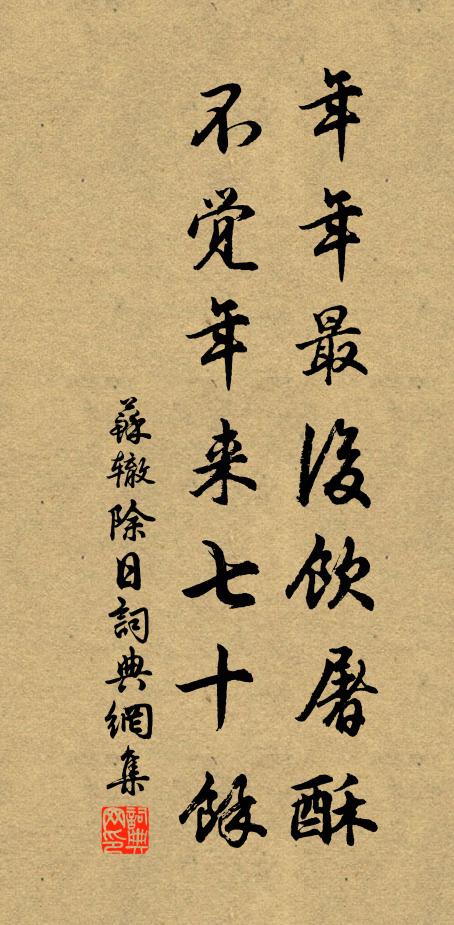 年年最後飲屠酥
不覺年来七十餘
蘇辙除日詞典網集
詞典网印